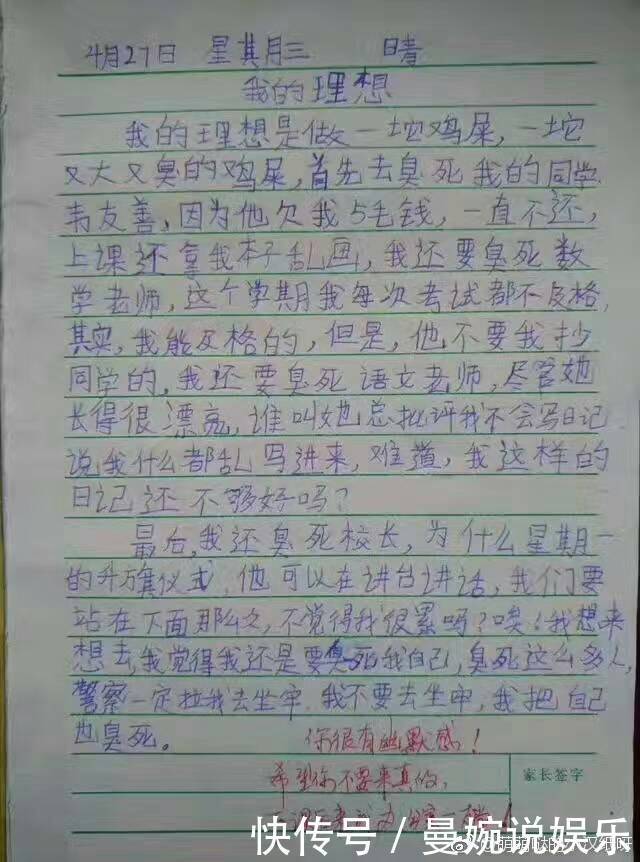 4月27日 星其月三 晴
我的理想
我的理想是做一坨鸡屎,一坨
又大又臭的鸡屎,首先去臭死我的同学
韦友善,因为他欠我5毛钱,一直不还,
上课还拿我本子乱画,我还要臭死数
学老师,这个学期我每次考试都不及格,
其实,我能及格的,但是,他不要我抄
同学的,我还要臭死语文老师,尽管她
长得很漂亮,谁叫她总批评我不会写日记
说我什么都乱写进来,难道,我这样的
日记还不够好吗?
最后,我还臭死校长,为什么星期一
的升旗仪式,他可以在讲台讲话,我们要
站在下面那么久,不觉得我很累吗?唉!我想来
想去,我觉得我还是要臭死我自己,臭死这么多人,
警察一定拉我去坐牢.我不要去坐牢,我把自己
也臭死。
你很有幽默感!
希望你不要来真的,
家长签字
快传号/曼婉说娱乐